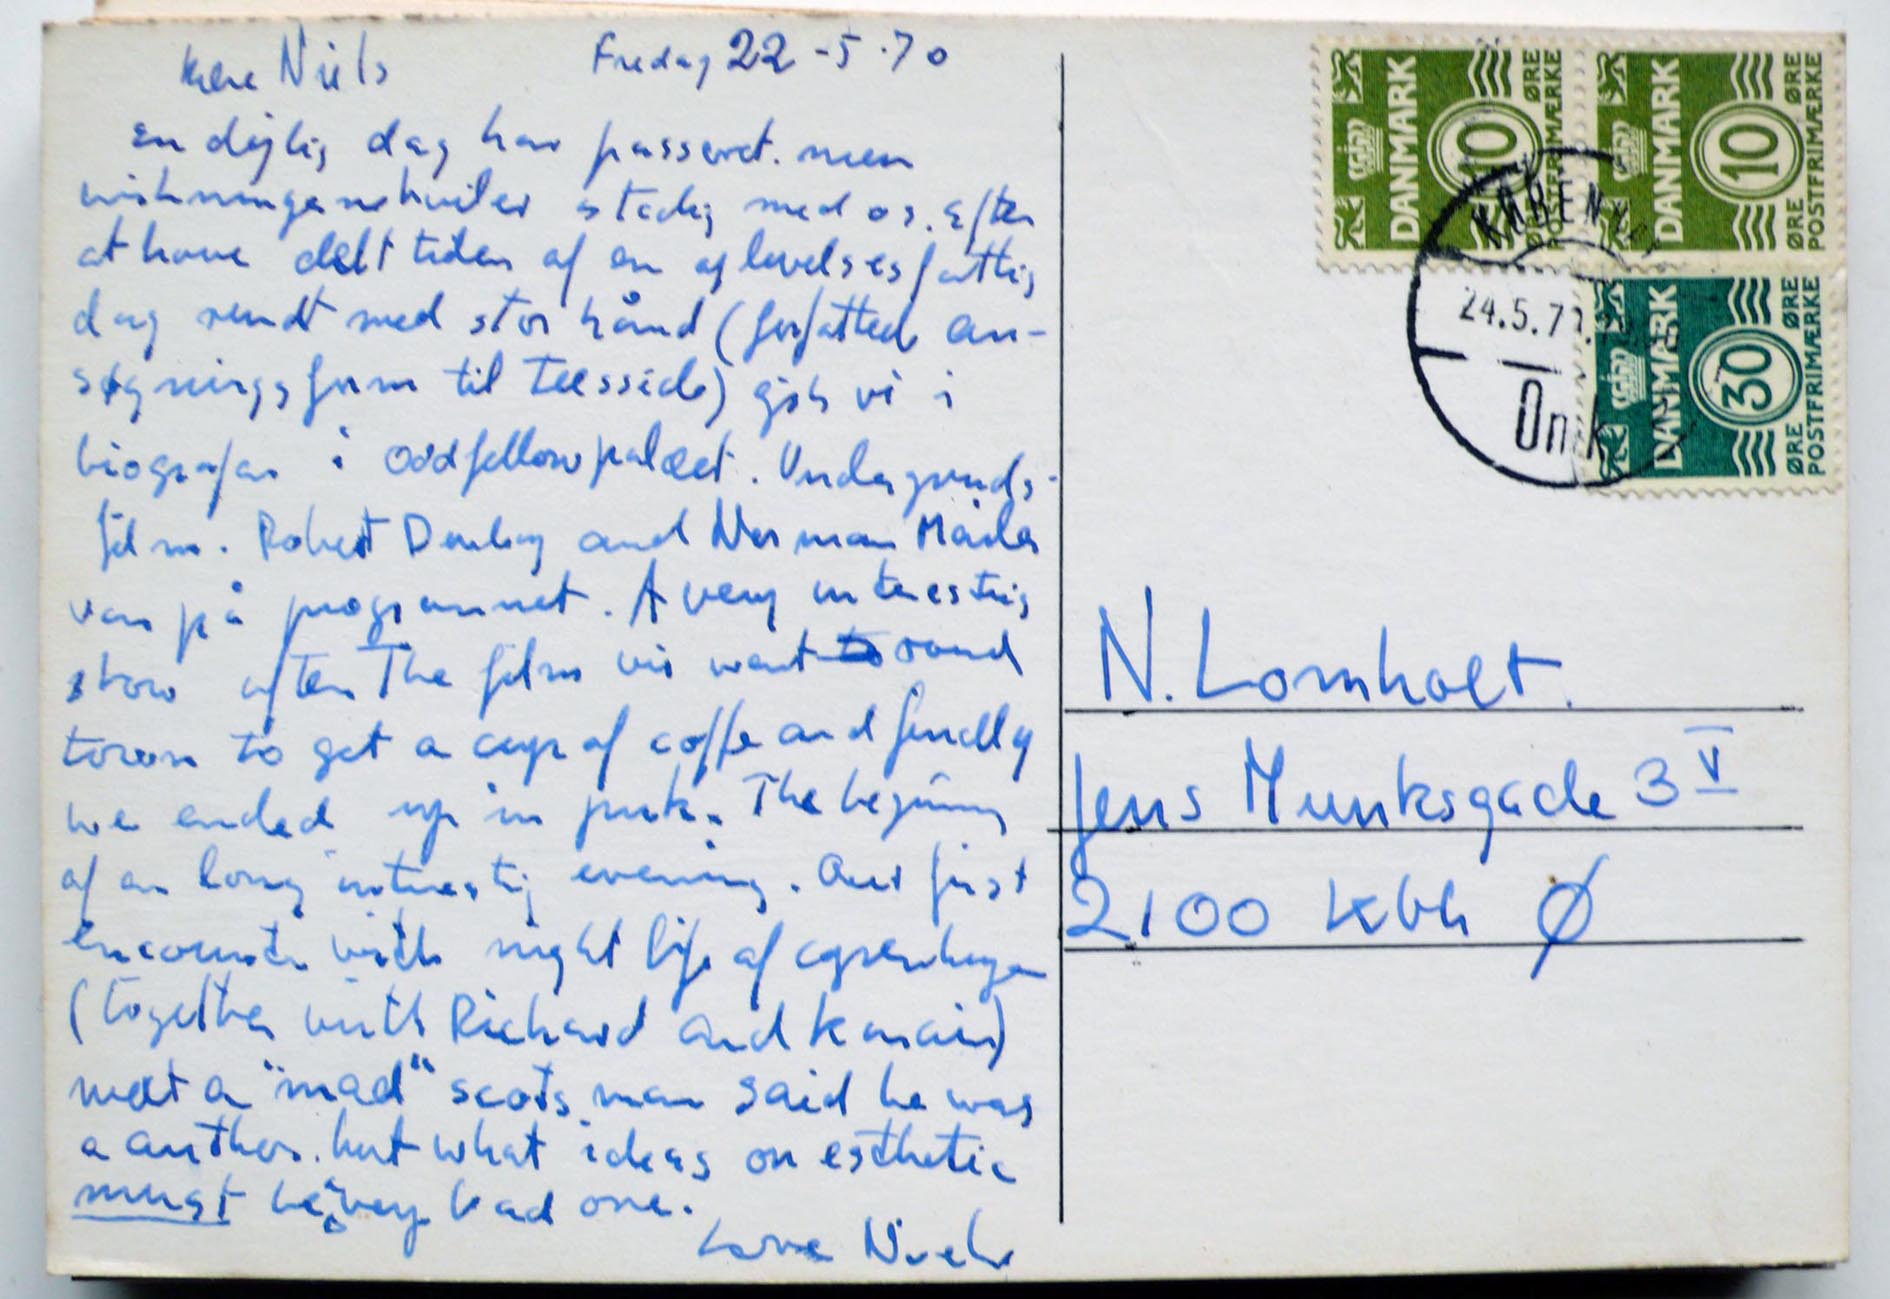 Kære Niels Fredag 22-5-70
En dejlig dag har passeret. men
stadig med os. Efter
at have delt tiden af en oplevelsesfattig
dag rendt med stor hånd (forfattede an-
søgningsform til Teesside) gik vi i
biografen i oddfellowpalæet. Undergrunds-
film. Robert Downey and Norman Mailer
var på programmet. A very interestig
show after The film we went round
town to get a cup of coffe and finally
we ended up in park. The beginning
of an long interestig evening. Our first
encounter with night life of copenhagen
(together with Richard and
met a "mad" scots man said he was
a author. but what ideas on esthetic
must be a very bad one.
Love Niels
DANMARK 10 ØRE POSTFRIMÆRKE ØRE
DANMARK 10 ØRE POSTFRIMÆRKE ØRE
DANMARK 30 ØRE POSTFRIMÆRKE ØRE
24.5.7
Omk
N. Lomholt.
Jens Munksgade 3 V
2100 Kbh Ø